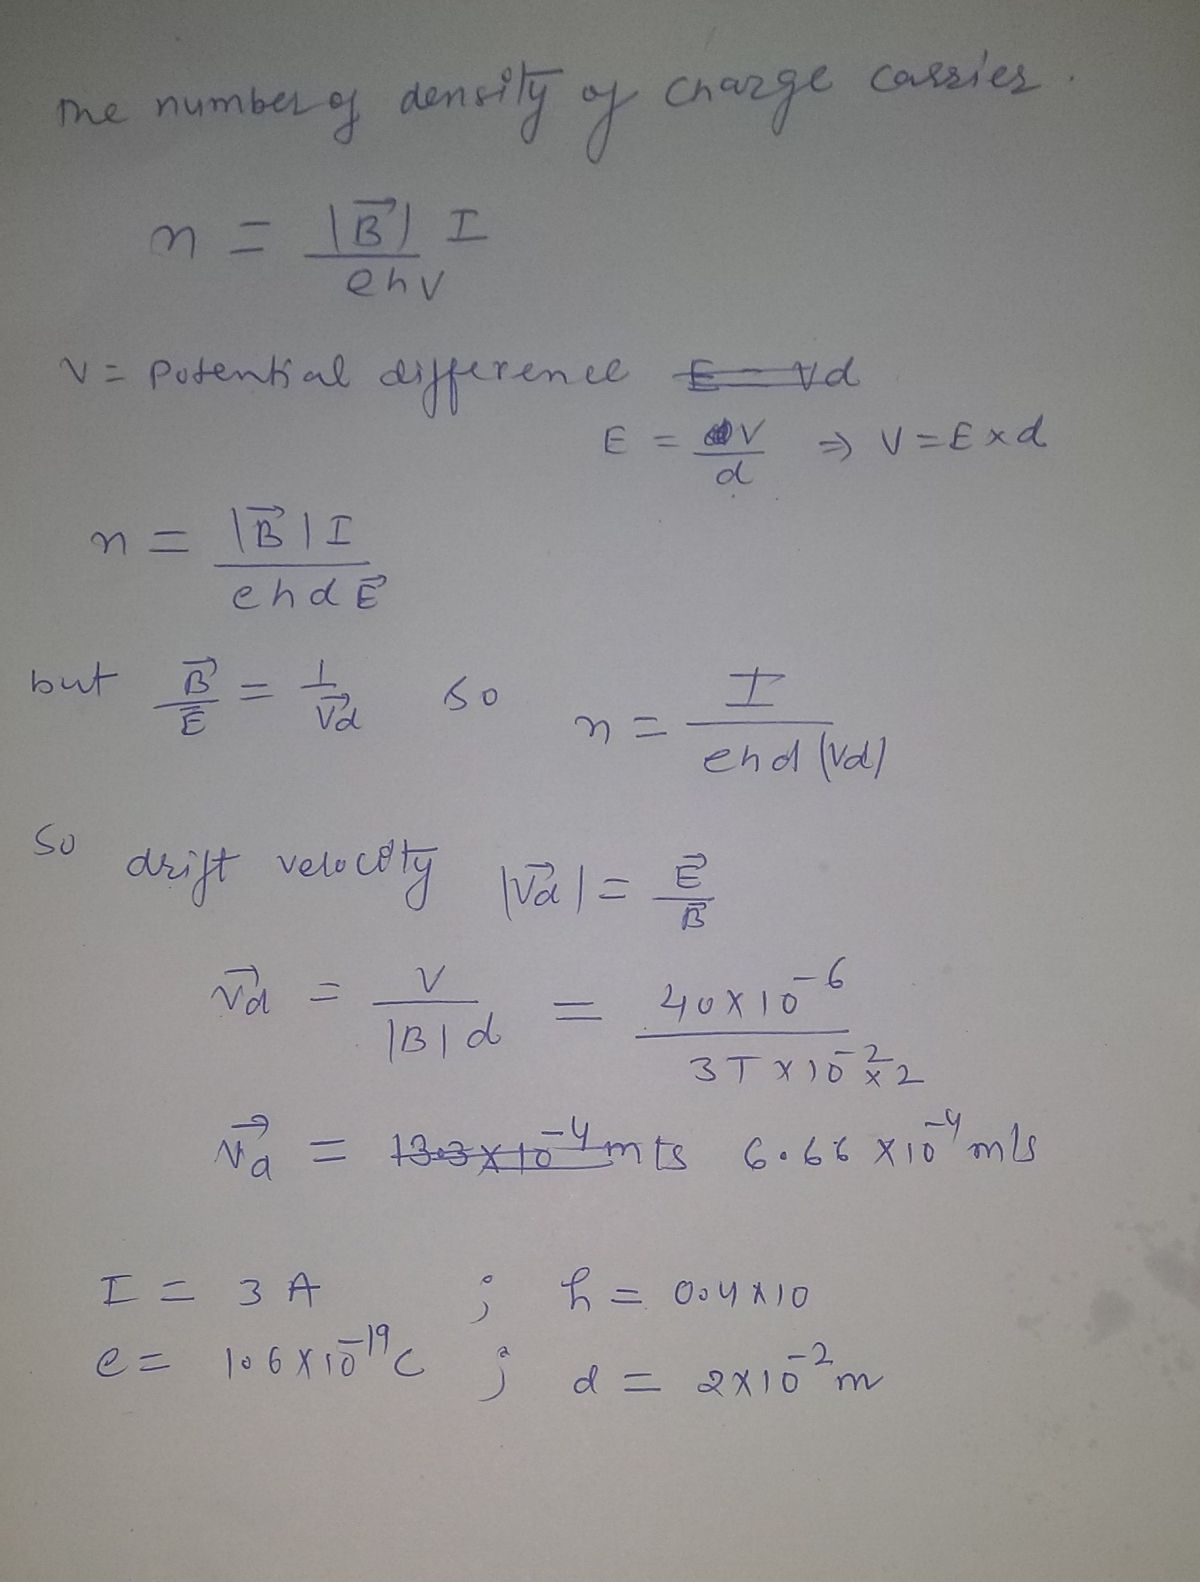 The number of density of charge carrier.
n = |B⃗| I / ehV
V = Potential difference E = Vd
E = V/d ⇒ V = E × d
n = |B⃗| I / ehdE⃗
but B⃗/E⃗ = 1/V⃗d so n = I / ehd (Vd)
So drift velocity |V⃗d| = E⃗/B⃗
V⃗d = V / |B| d = 40 × 10⁻⁶ / 3T × 10⁻² × 2
V⃗d = 13.3 × 10⁻⁴ m/s 6.66 × 10⁻⁴ m/s
I = 3 A ; h = 0.4 × 10
e = 1.6 × 10⁻¹⁹ C ; d = 2 × 10⁻² m